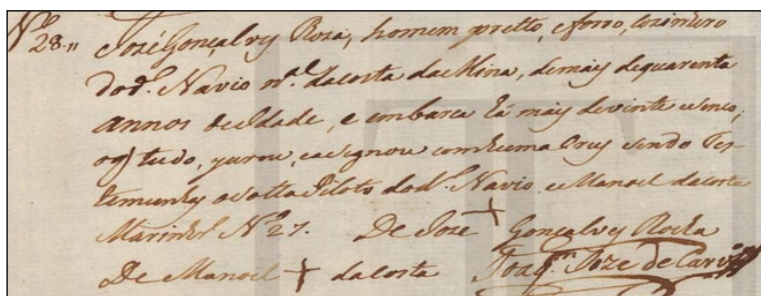 Nº 28." José Gonçalvez Roza, homem pretto, e forro, cozinhero
do dº. Navio nal. da costa da Mina, de may de quarenta
annos de Idade, e embarca há may de vinte e sinco;
o q tudo, jurou, e asignou com huma Cruz sendo Tes-
temunhas o Piloto do dº. Navio, e Manoel da costa
Marinhrº Nº 27. De José + Gonçalvez Rocha
De Manoel + da costa Joaqm. Joze de Carvº